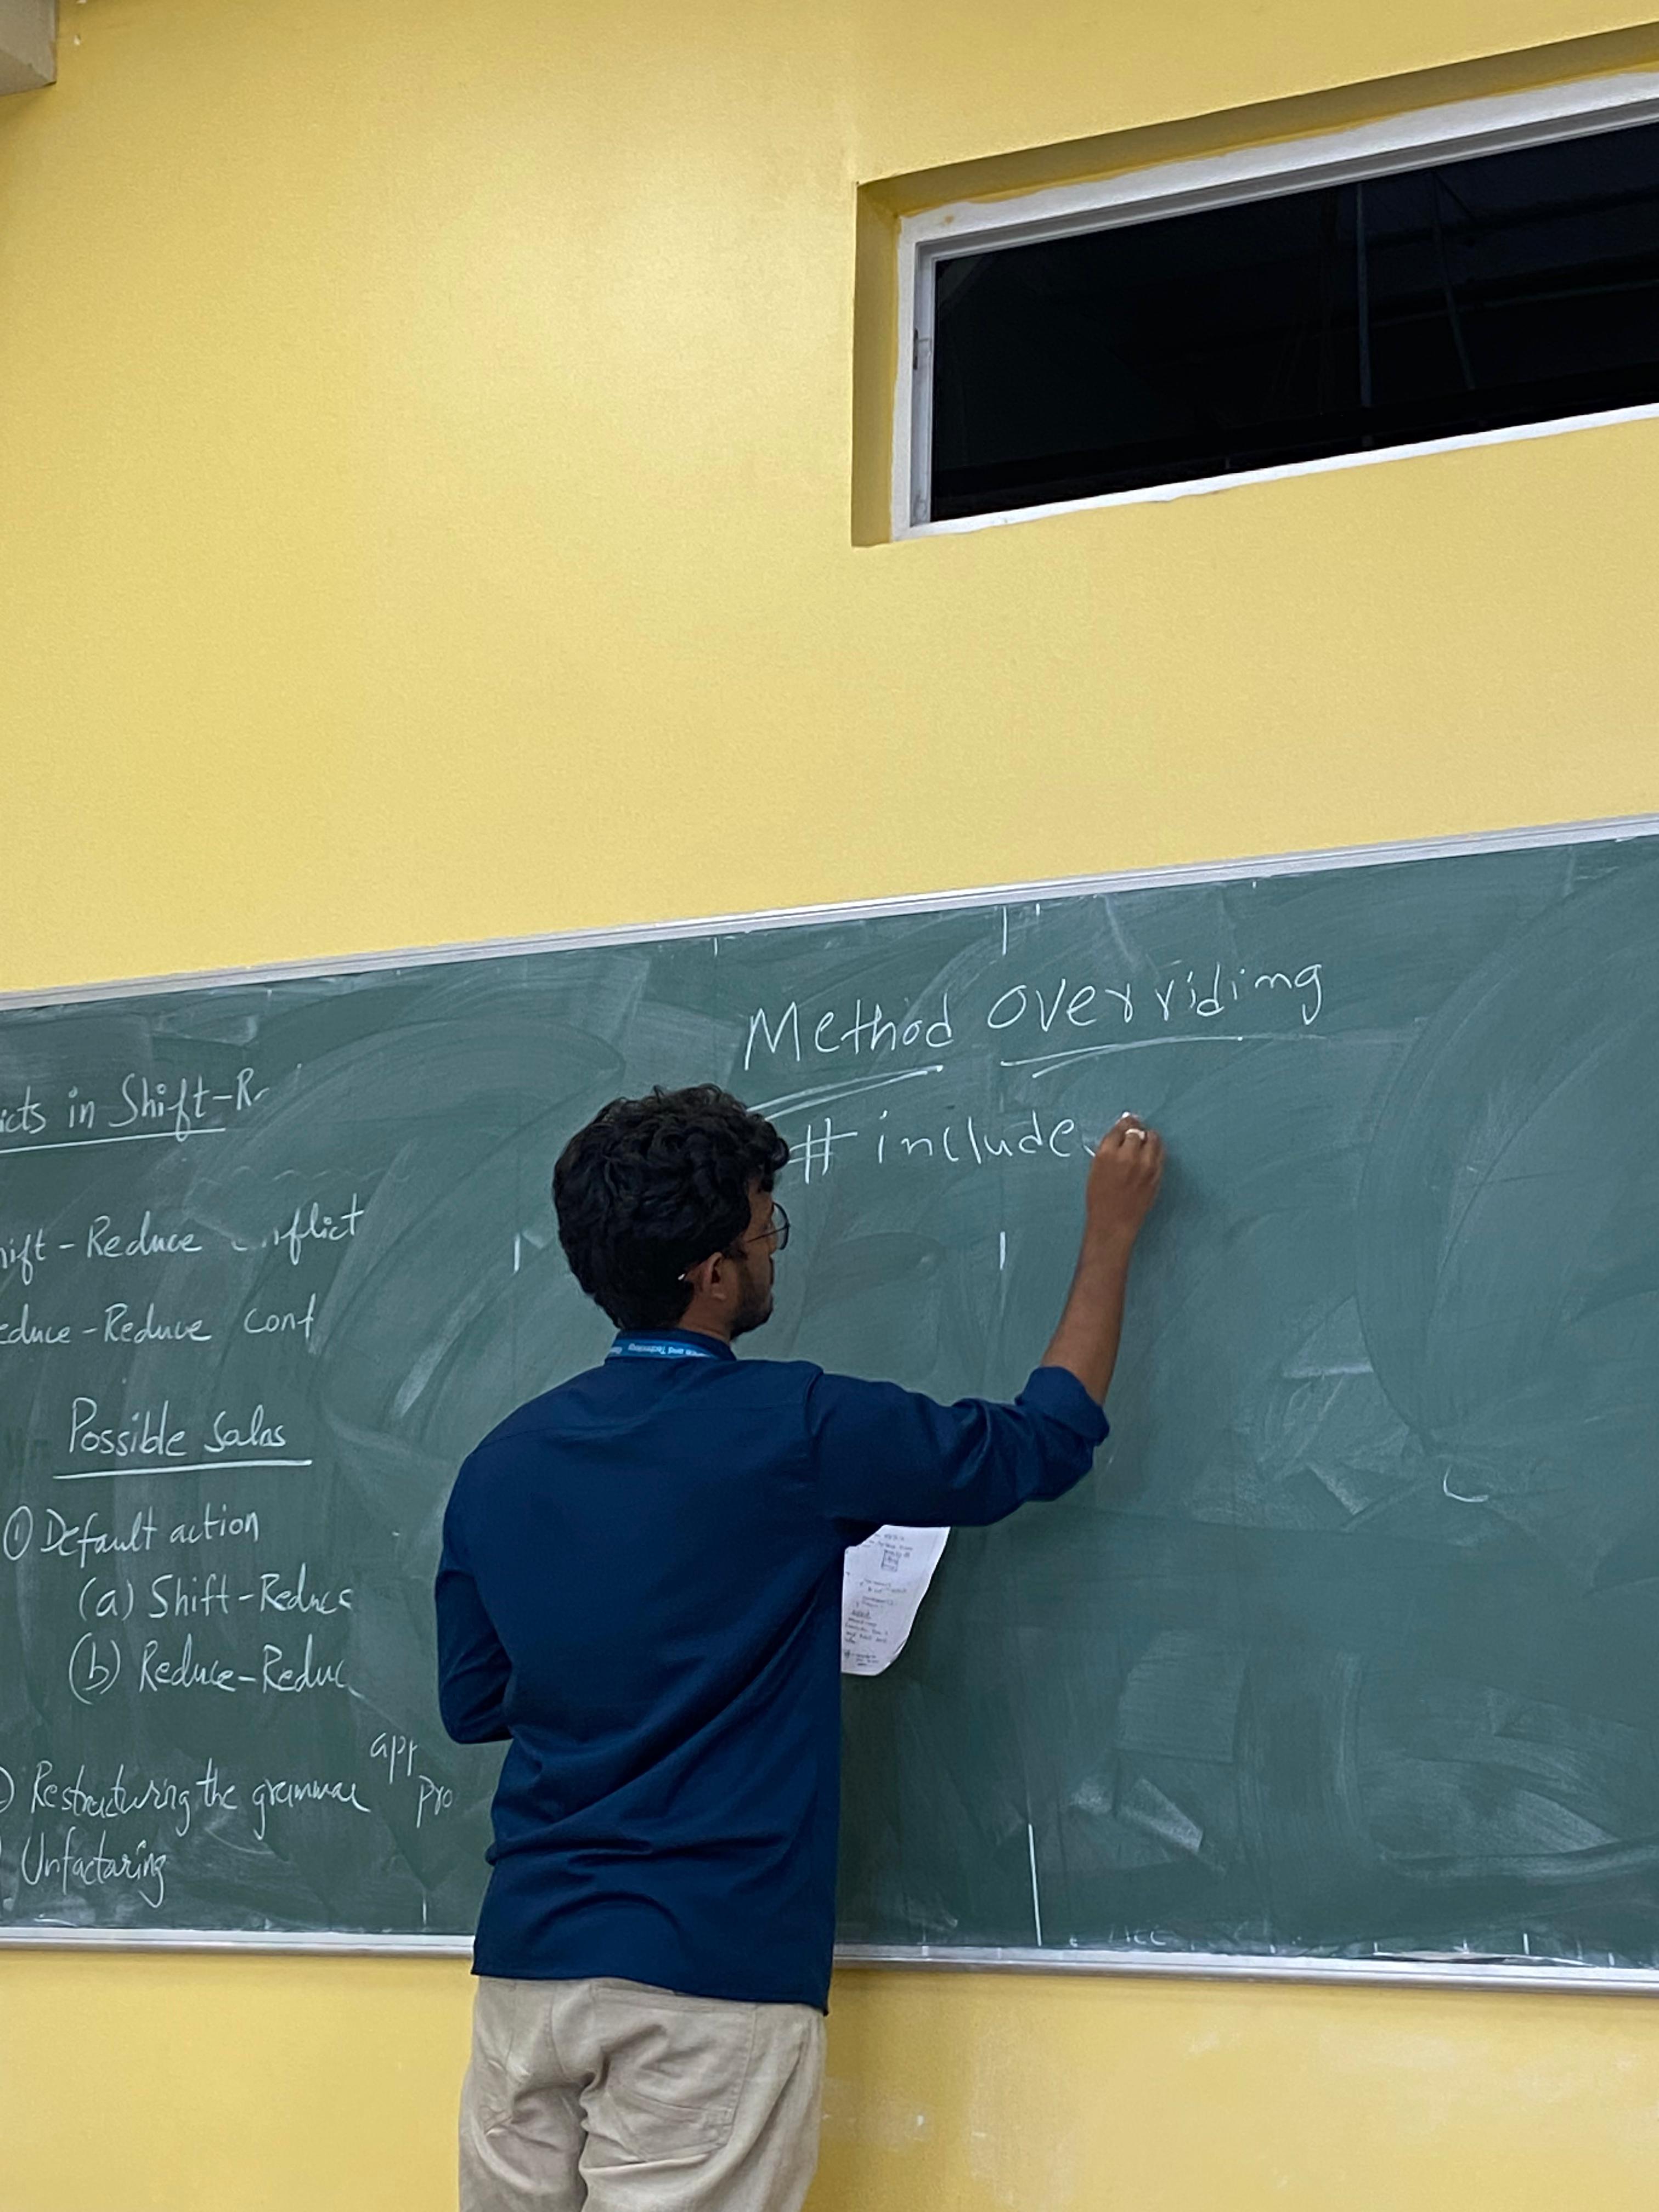 icts in Shift-R
hift-Reduce
educe-Reduce conf
Possible Solns
① Default action
(a) Shift-Reduce
(b) Reduce-Reduc
app
pro
Restructuring the grammar
Unfactoring
Method overriding
# include